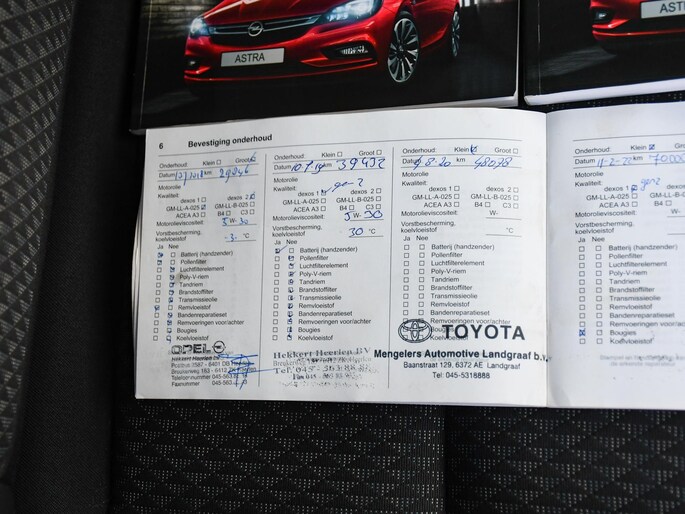 ASTRA
ASTRA
6 Bevestiging onderhoud
Onderhoud: Klein Groot
Datum km 29946
Motorolie
Kwaliteit:
dexos 1 dexos 2
GM-LL-A-025 GM-LL-B-025
ACEA A3 B4 C3
Motorolieviscositeit: 5 W- 30
Vorstbescherming,
koelvloeistof -3 °C
Ja Nee
Batterij (handzender)
Pollenfilter
Luchtfilterelement
Poly-V-riem
Tandriem
Brandstoffilter
Transmissieolie
Remvloeistof
Bandenreparatieset
Remvoeringen voor/achter
Bougies
Koelvloeistof
OPEL
Hekkert Heerlen
Postbus 7587 - 6401
Telefoonnummer 045-563
Faxnummer 045-563
Onderhoud: Klein Groot
Datum 10.7.19 km 39432
Motorolie
Kwaliteit:
dexos 1 gen 2 dexos 2
GM-LL-A-025 GM-LL-B-025
ACEA A3 B4 C3
Motorolieviscositeit: 5 W- 30
Vorstbescherming,
koelvloeistof 30 °C
Ja Nee
Batterij (handzender)
Pollenfilter
Luchtfilterelement
Poly-V-riem
Tandriem
Brandstoffilter
Transmissieolie
Remvloeistof
Bandenreparatieset
Remvoeringen voor/achter
Bougies
Koelvloeistof
Hekkert Heerlen BV
Onderhoud: Klein Groot
Datum 8-20 km 48078
Motorolie
Kwaliteit:
dexos 1 dexos 2
GM-LL-A-025 GM-LL-B-025
ACEA A3 B4 C3
Motorolieviscositeit: W-
Vorstbescherming,
koelvloeistof °C
Ja Nee
Batterij (handzender)
Pollenfilter
Luchtfilterelement
Poly-V-riem
Tandriem
Brandstoffilter
Transmissieolie
Remvloeistof
Bandenreparatieset
Remvoeringen voor/achter
Bougies
Koelvloeistof
TOYOTA
Mengelers Automotive Landgraaf b.v.
Baanstraat 129, 6372 AE Landgraaf
Tel: 045-5318888
Onderhoud: Klein Groot
Datum km 70000
Motorolie
Kwaliteit:
dexos 1 gen 2
GM-LL-A-025
ACEA A3
Motorolieviscositeit:
Vorstbescherming,
koelvloeistof
Ja Nee
Batterij (handzender)
Pollenfilter
Luchtfilterelement
Poly-V-riem
Tandriem
Brandstoffilter
Transmissieolie
Remvloeistof
Bandenreparatieset
Remvoeringen voor/achter
Bougies
Koelvloeistof